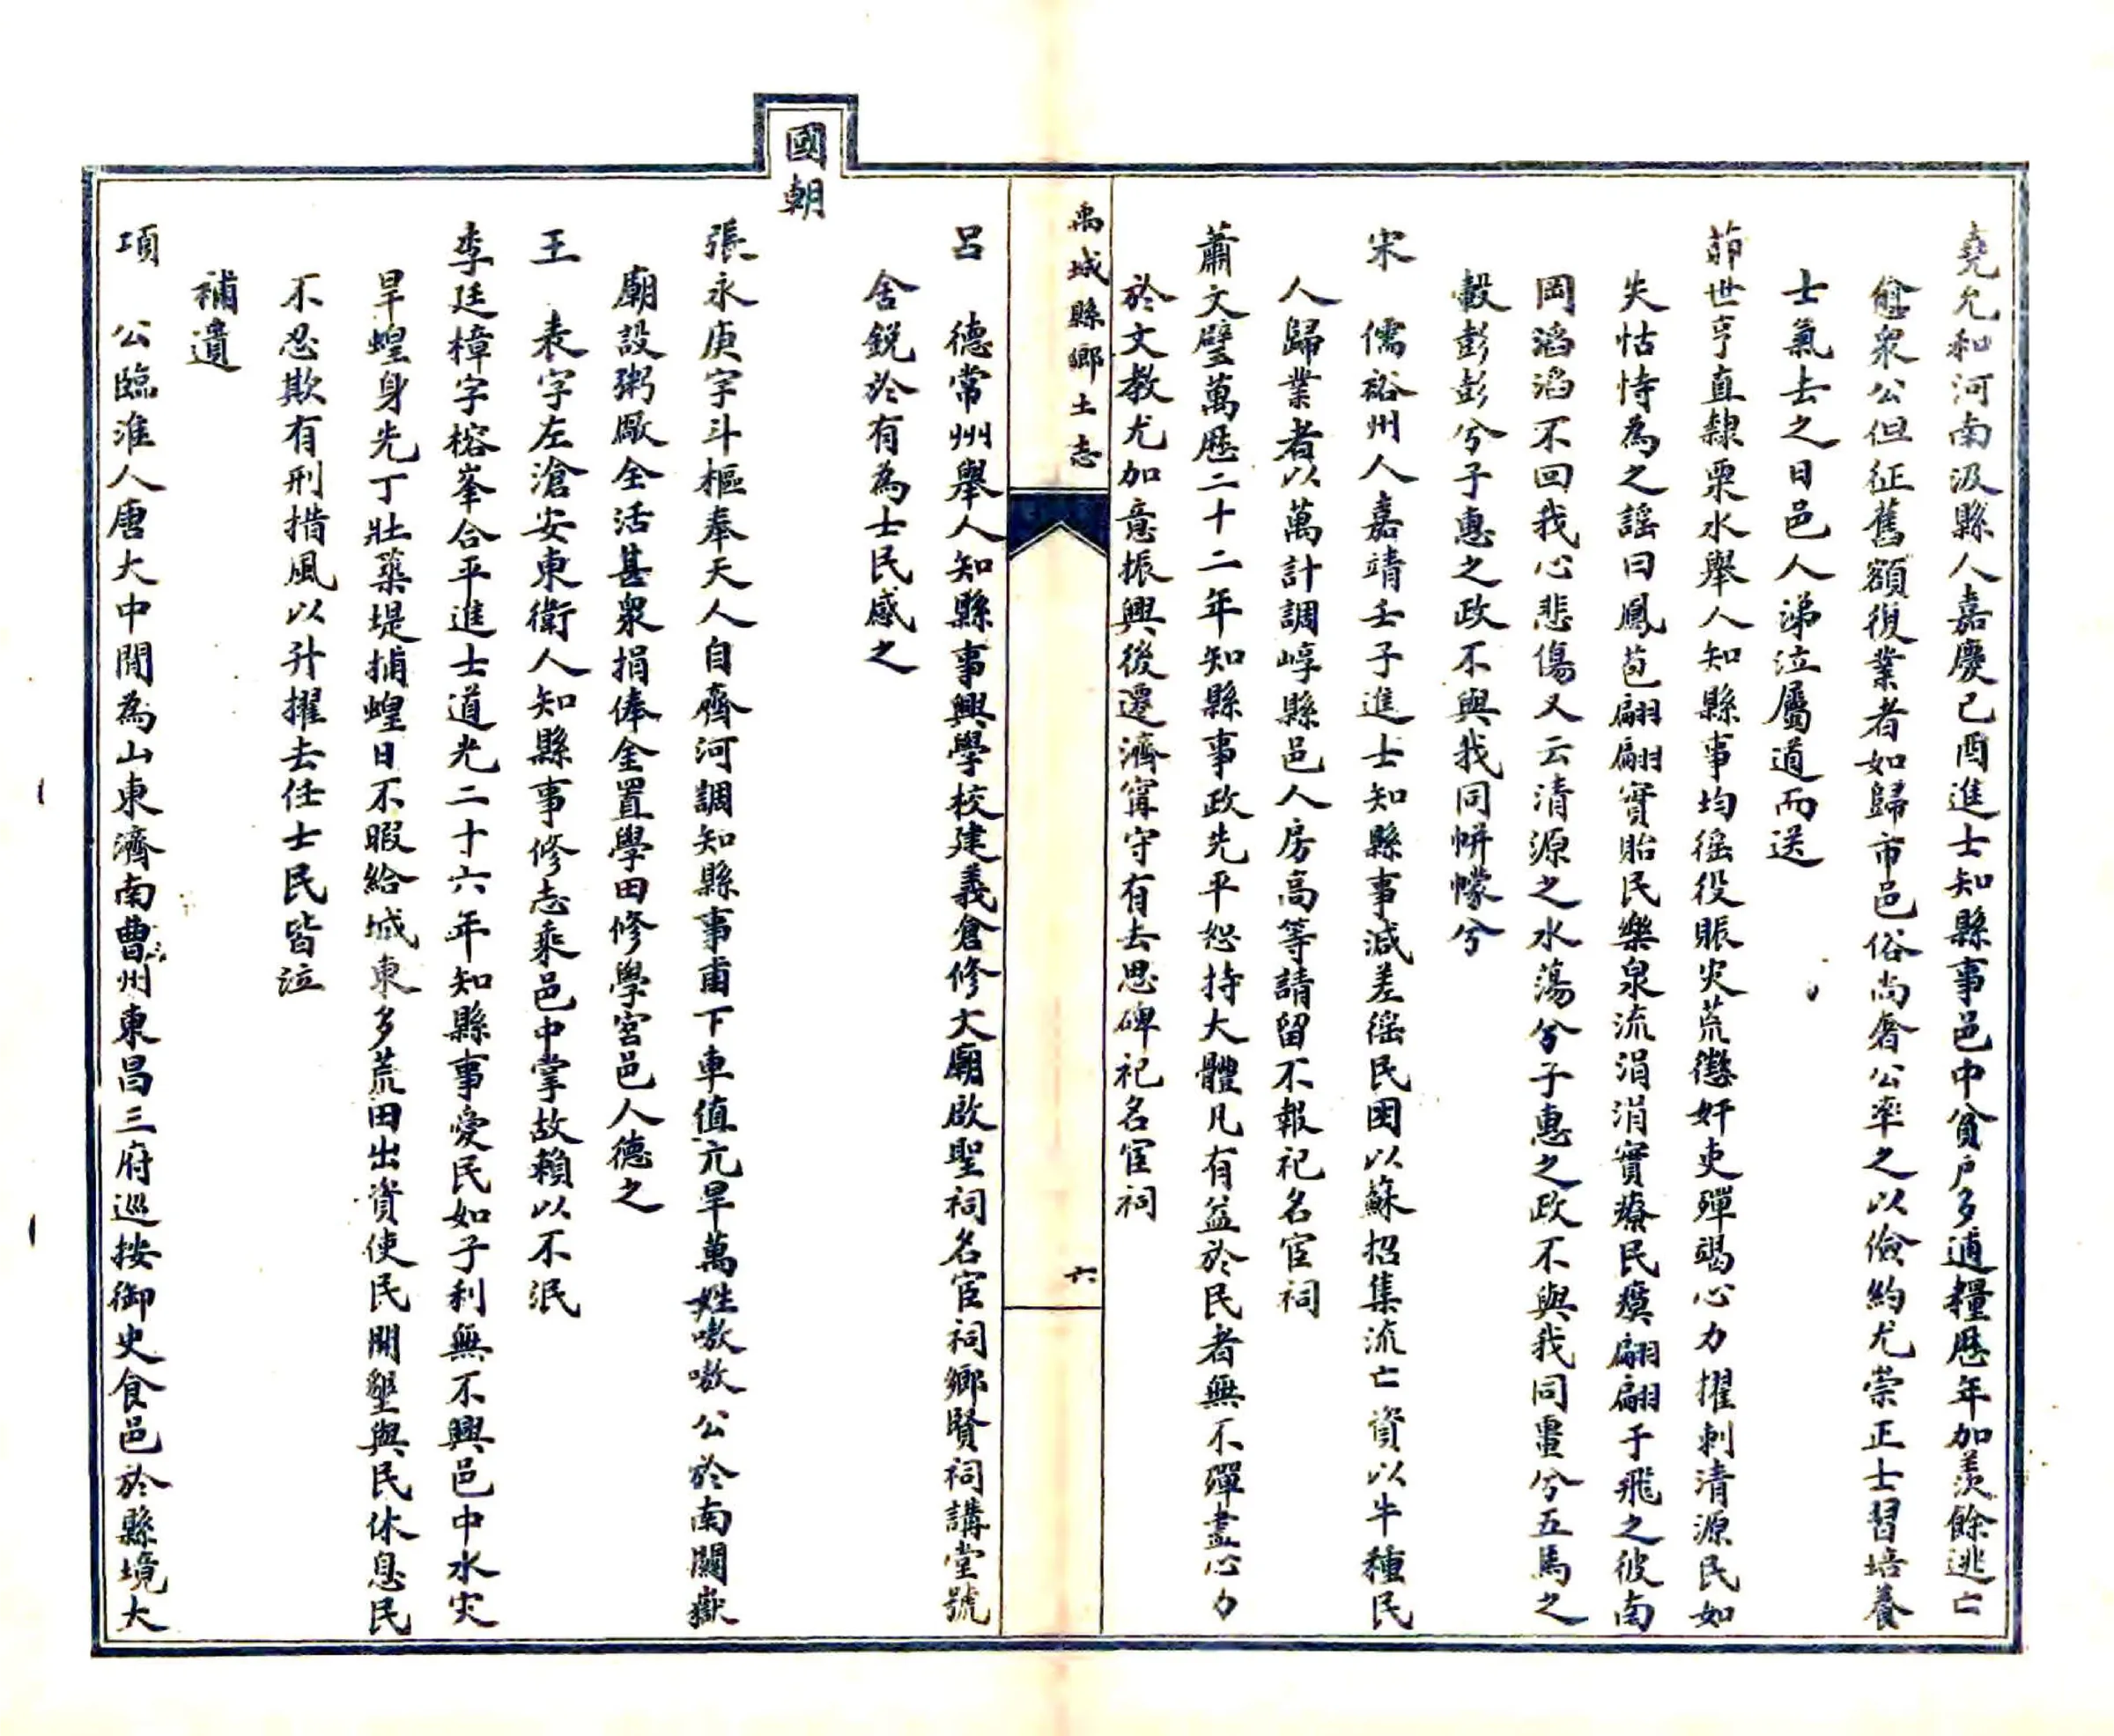 堯允和河南汲縣人嘉慶己酉進士知縣事邑中貧戶多逋糧歷年加羨餘逃亡
愈衆公但征舊額復業者如歸市邑俗尚奢公率之以儉約尤崇正士習培養
士氣去之日邑人涕泣屬道而送
茆世亨直隸栗水舉人知縣事均徭役賑灾荒懲奸吏殫竭心力擢刺清源民如
失怙恃為之謠曰鳳苞翩翩實貽民樂泉流涓涓實療民瘼翩翩于飛之彼南
岡滔滔不回我心悲傷又云清源之水蕩兮子惠之政不與我同畺兮五馬之
轂彭彭兮子惠之政不與我同帡幪兮
宋 儒裕州人嘉靖壬子進士知縣事減差徭民困以蘇招集流亡資以牛種民
人歸業者以萬計調崞縣邑人房高等請留不報祀名宦祠
蕭文璧萬歷二十二年知縣事政先平恕持大體凡有益於民者無不殫盡心力
於文教尤加意振興後遷濟甯守有去思碑祀名宦祠
禹城縣鄉土志
六
呂 德常州舉人知縣事興學校建義倉修大廟啟聖祠名宦祠鄉賢祠講堂號
舍銳於有為士民感之
國朝
張永庚字斗樞奉天人自齊河調知縣事甫下車值亢旱萬姓嗷嗷公於南關嶽
廟設粥廠全活甚衆捐俸金置學田修學宮邑人德之
王 表字左滄安東衛人知縣事修志乘邑中掌故賴以不泯
李廷樟字榕峯合平進士道光二十六年知縣事愛民如子利無不興邑中水灾
旱蝗身先丁壯築堤捕蝗日不暇給城東多荒田出資使民開墾與民休息民
不忍欺有刑措風以升擢去任士民皆泣
補遺
項 公臨淮人唐大中間為山東濟南曹州東昌三府巡按御史食邑於縣境大